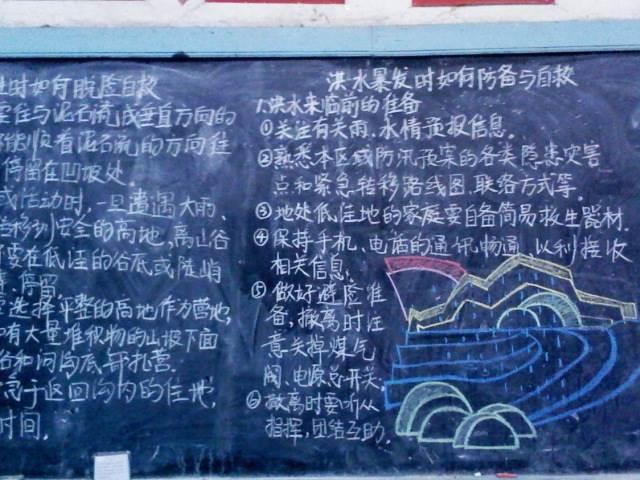 时如何脱险自救
住与泥石流成垂直方向的
顺着泥石流的方向往
停留在凹坡处.
或活动时,一旦遭遇大雨、
移到安全的高地,离山谷
要在低洼的谷底或陡峭
停留
选择平整的高地作为营地,
有大量堆积物的山坡下面
谷和河沟底部扎营.
急于返回沟内的住地,
时间.
洪水暴发时如何防备与自救
1.洪水来临前的准备
①关注有关雨、水情预报信息。
②熟悉本区域防汛预案的各类隐患灾害
点和紧急转移路线图、联络方式等。
③地处低洼地的家庭要自备简易救生器材.
④保持手机、电话的通讯畅通,以利接收
相关信息.
⑤做好避险准
备,撤离时注
意关掉煤气
阀、电源总开关.
⑥撤离时要听从
指挥,团结互助.